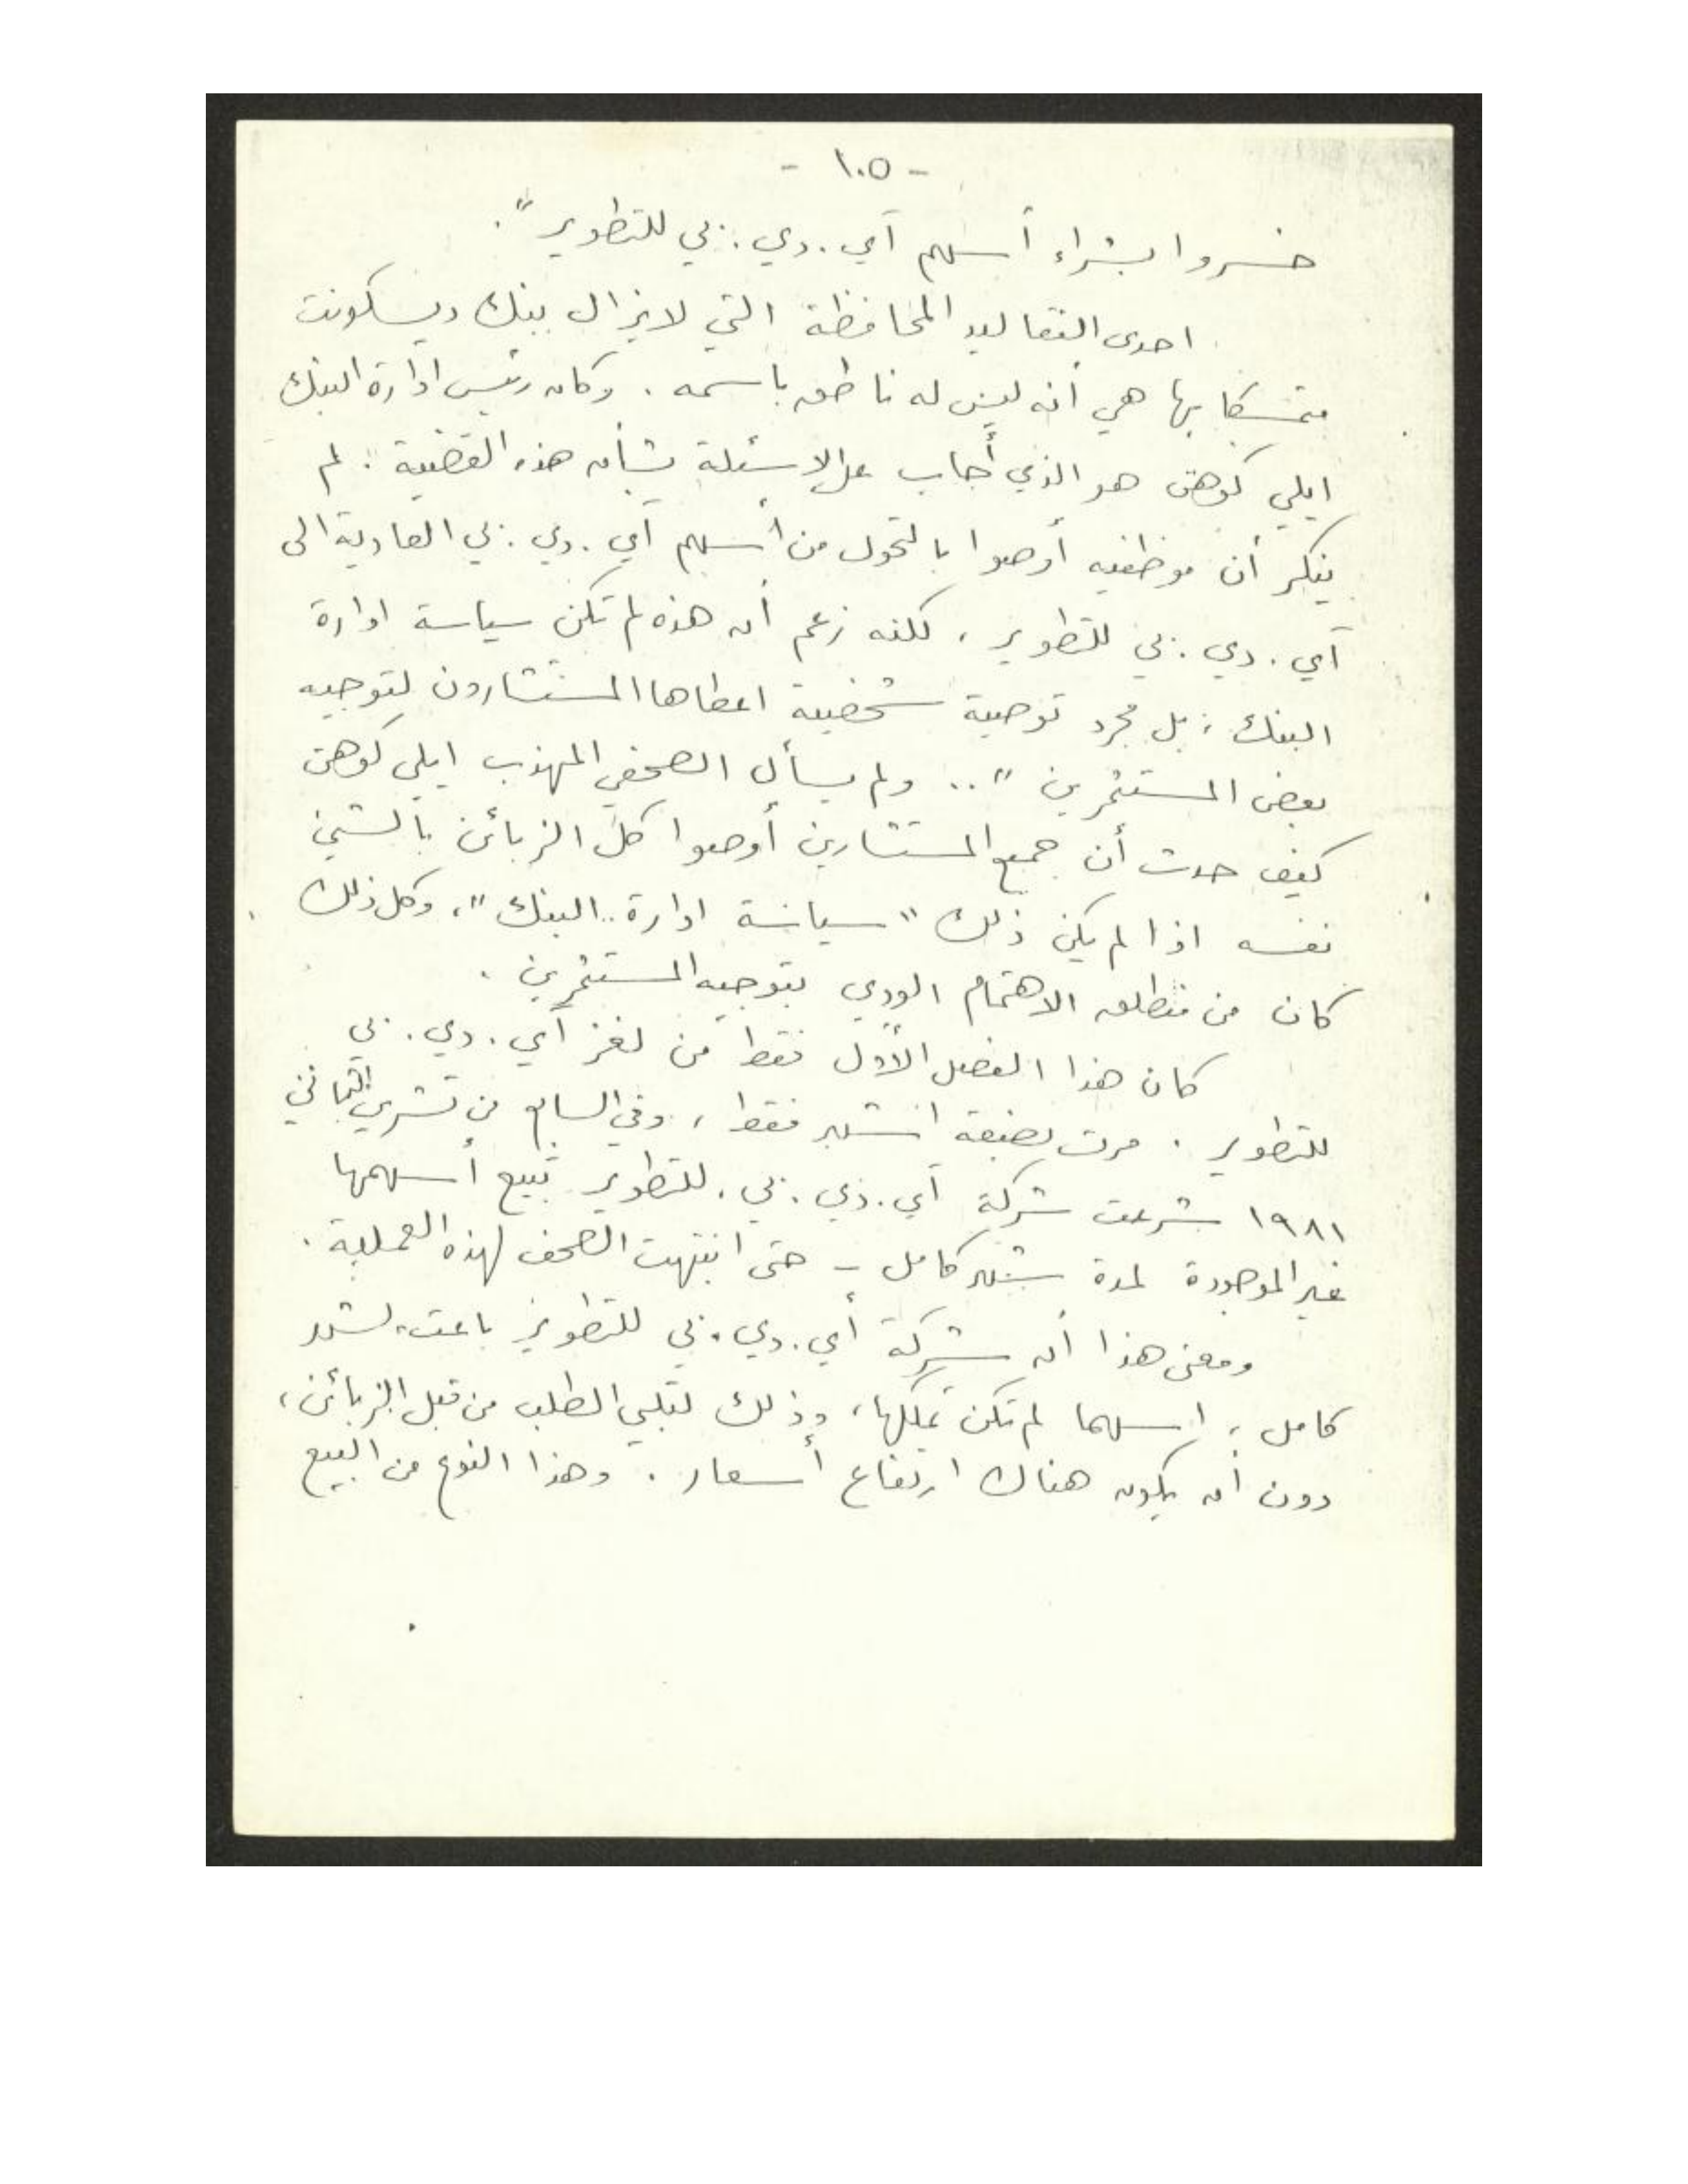 - ١٠٥ -
خسروا بشراء أسهم آي . دي . بي للتطوير " .
احدى التقاليد المحافظة التي لا يزال بنك ديسكونت
متمسكا بها هي أنه ليس له ناطق باسمه . وكان رئيس ادارة البنك
ايلي كوهن هو الذي أجاب على الاسئلة بشأن هذه القضية : لم
ينكر أن موظفيه أوصوا بالتحول من أسهم آي . دي . بي العادية الى
آي . دي . بي للتطوير ، لكنه زعم أن هذه لم تكن سياسة ادارة
البنك ؛ بل مجرد توصية شخصية اعطاها المستشارون لتوجيه
بعض المستثمرين " .. ولم يسأل الصحفي المهذب ايلي كوهن
كيف حدث أن جميع المستشارين أوصوا كل الزبائن بالشيئ
نفسه اذا لم يكن ذلك " سياسة ادارة البنك " ، وكل ذلك
كان من منطلق الاهتمام الودي بتوجيه المستثمرين .
كان هذا الفصل الأول فقط من لغز آي . دي . بي
للتطوير . مرت بضعة أشهر فقط ، وفي السابع من تشرين الثاني
١٩٨١ شرعت شركة آي . دي . بي . للتطوير تبيع أسهمها
غير الموجودة لمدة شهر كامل - حتى انتبهت الصحف لهذه العملية .
ومعنى هذا أن شركة أي . دي . بي للتطوير باعت ، لشهر
كامل ، اسهما لم تكن تملكها ، وذلك لتلبي الطلب من قبل الزبائن ،
دون أن يكون هناك ارتفاع أسعار . وهذا النوع من البيع